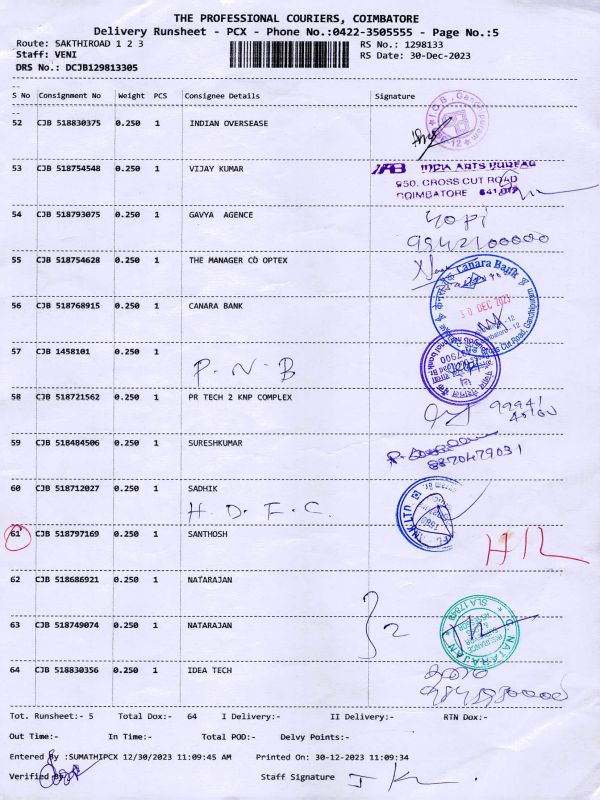 THE PROFESSIONAL COURIERS, COIMBATORE
Delivery Runsheet - PCX - Phone No.:0422-3505555 - Page No.:5
Route: SAKTHIROAD 1 2 3 RS No.: 1298133
Staff: VENI RS Date: 30-Dec-2023
DRS No.: DCJB129813305
S No Consignment No Weight PCS Consignee Details Signature
52 CJB 518830375 0.250 1 INDIAN OVERSEASE
53 CJB 518754548 0.250 1 VIJAY KUMAR
IAB INDIA ARTS BUREAU
950, CROSS CUT ROAD
COIMBATORE 641 012
54 CJB 518793075 0.250 1 GAVYA AGENCE
Gopi
9942100000
55 CJB 518754628 0.250 1 THE MANAGER CO OPTEX
56 CJB 518768915 0.250 1 CANARA BANK
Canara Bank
30 DEC 2023
Cross Cut Road, Gandhipuram
57 CJB 1458101 0.250 1
P.N.B
58 CJB 518721562 0.250 1 PR TECH 2 KNP COMPLEX
59 CJB 518484506 0.250 1 SURESHKUMAR
8870479031
60 CJB 518712027 0.250 1 SADHIK
H.D.F.C.
61 CJB 518797169 0.250 1 SANTHOSH
62 CJB 518686921 0.250 1 NATARAJAN
63 CJB 518749074 0.250 1 NATARAJAN
2
NATARAJAN
64 CJB 518830356 0.250 1 IDEA TECH
Tot. Runsheet:- 5 Total Dox:- 64 I Delivery:- II Delivery:- RTN Dox:-
Out Time:- In Time:- Total POD:- Delvy Points:-
Entered By :SUMATHIPCX 12/30/2023 11:09:45 AM Printed On: 30-12-2023 11:09:34
Verified By Staff Signature